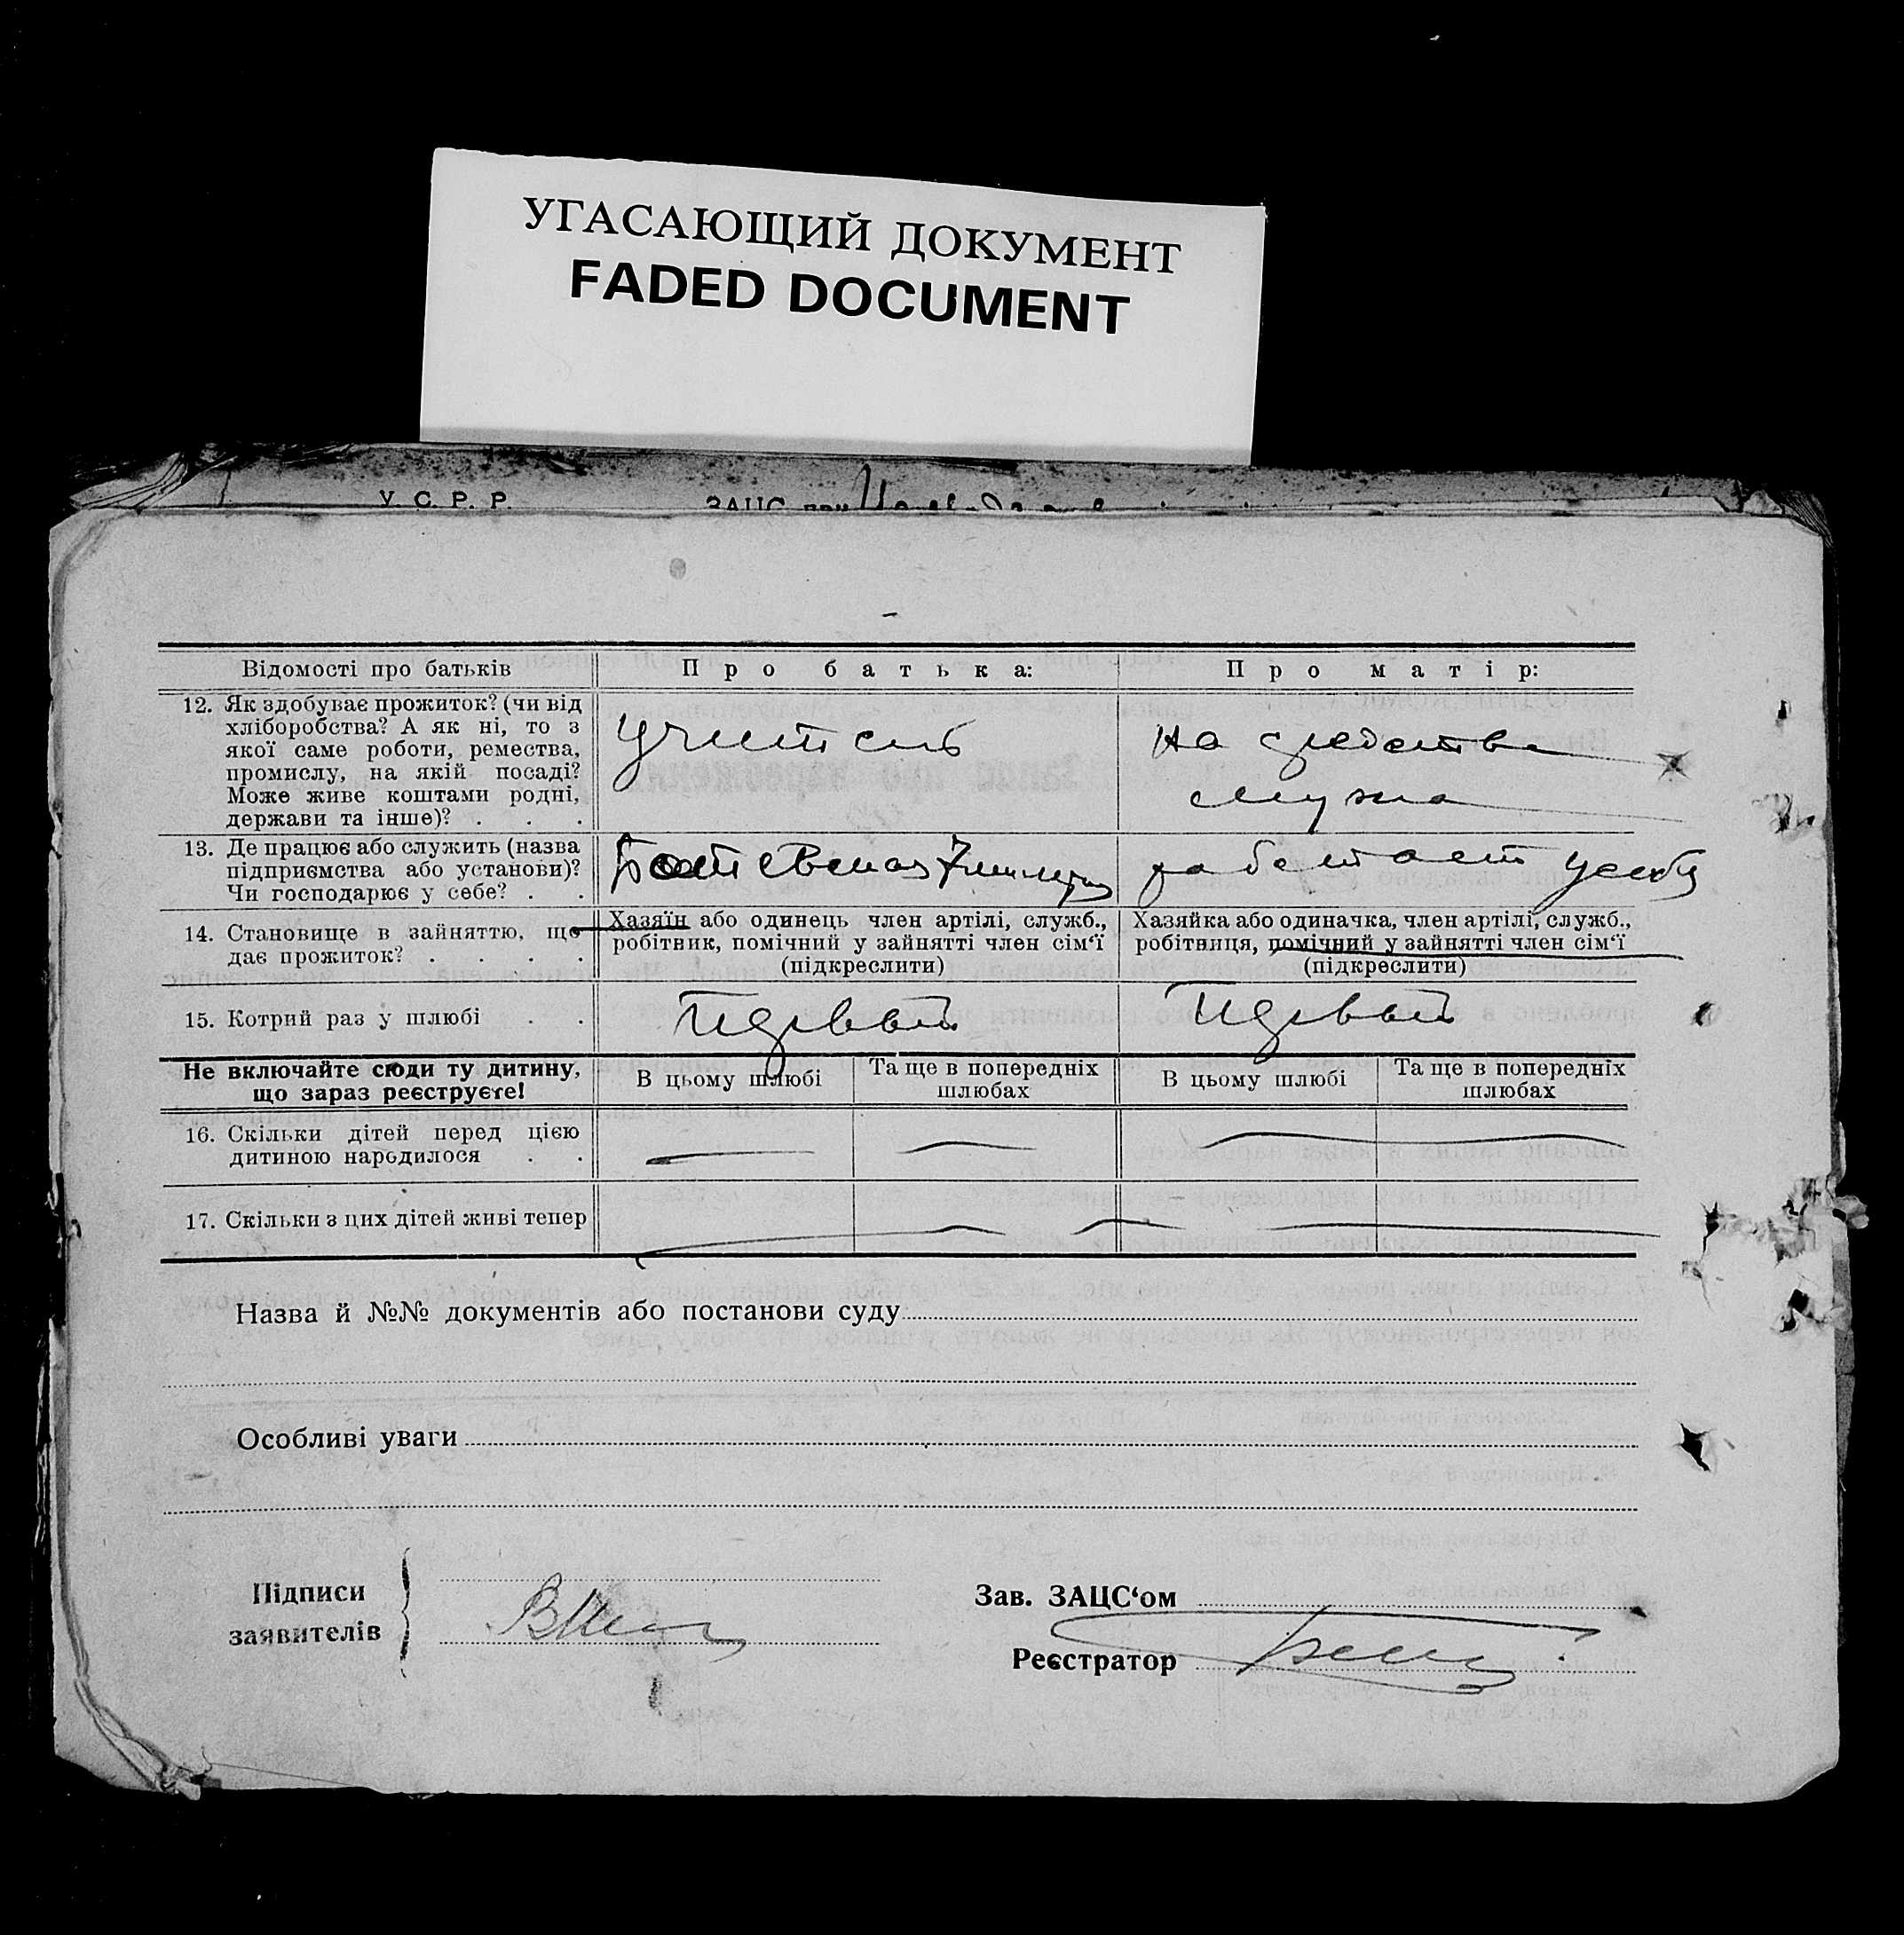 УГАСАЮЩИЙ ДОКУМЕНТ
FADED DOCUMENT
У. С. Р. Р.
ЗАЦС при
Відомості про батьків
Про батька:
Про матір:
12. Як здобуває прожиток? (чи від
хліборобства? А як ні, то з
якої саме роботи, ремества,
промислу, на якій посаді?
Може живе коштами родні,
держави та інше)? . . .
учитель
на средства
мужа
13. Де працює або служить (назва
підприємства або установи)?
Чи господарює у себе? . .
работает у себя
14. Становище в зайняттю, що
дає прожиток? . . . .
Хазяїн або одинець член артілі, служб.,
робітник, помічний у зайнятті член сім'ї
(підкреслити)
Хазяйка або одиначка, член артілі, служб.,
робітниця, помічний у зайнятті член сім'ї
(підкреслити)
15. Котрий раз у шлюбі . .
первый
первый
Не включайте сюди ту дитину,
що зараз реєструєте!
В цьому шлюбі
Та ще в попередніх
шлюбах
В цьому шлюбі
Та ще в попередніх
шлюбах
16. Скільки дітей перед цією
дитиною народилося . .
17. Скільки з цих дітей живі тепер
Назва й №№ документів або постанови суду
Особливі уваги
Підписи
заявителів
Зав. ЗАЦС'ом
Реєстратор